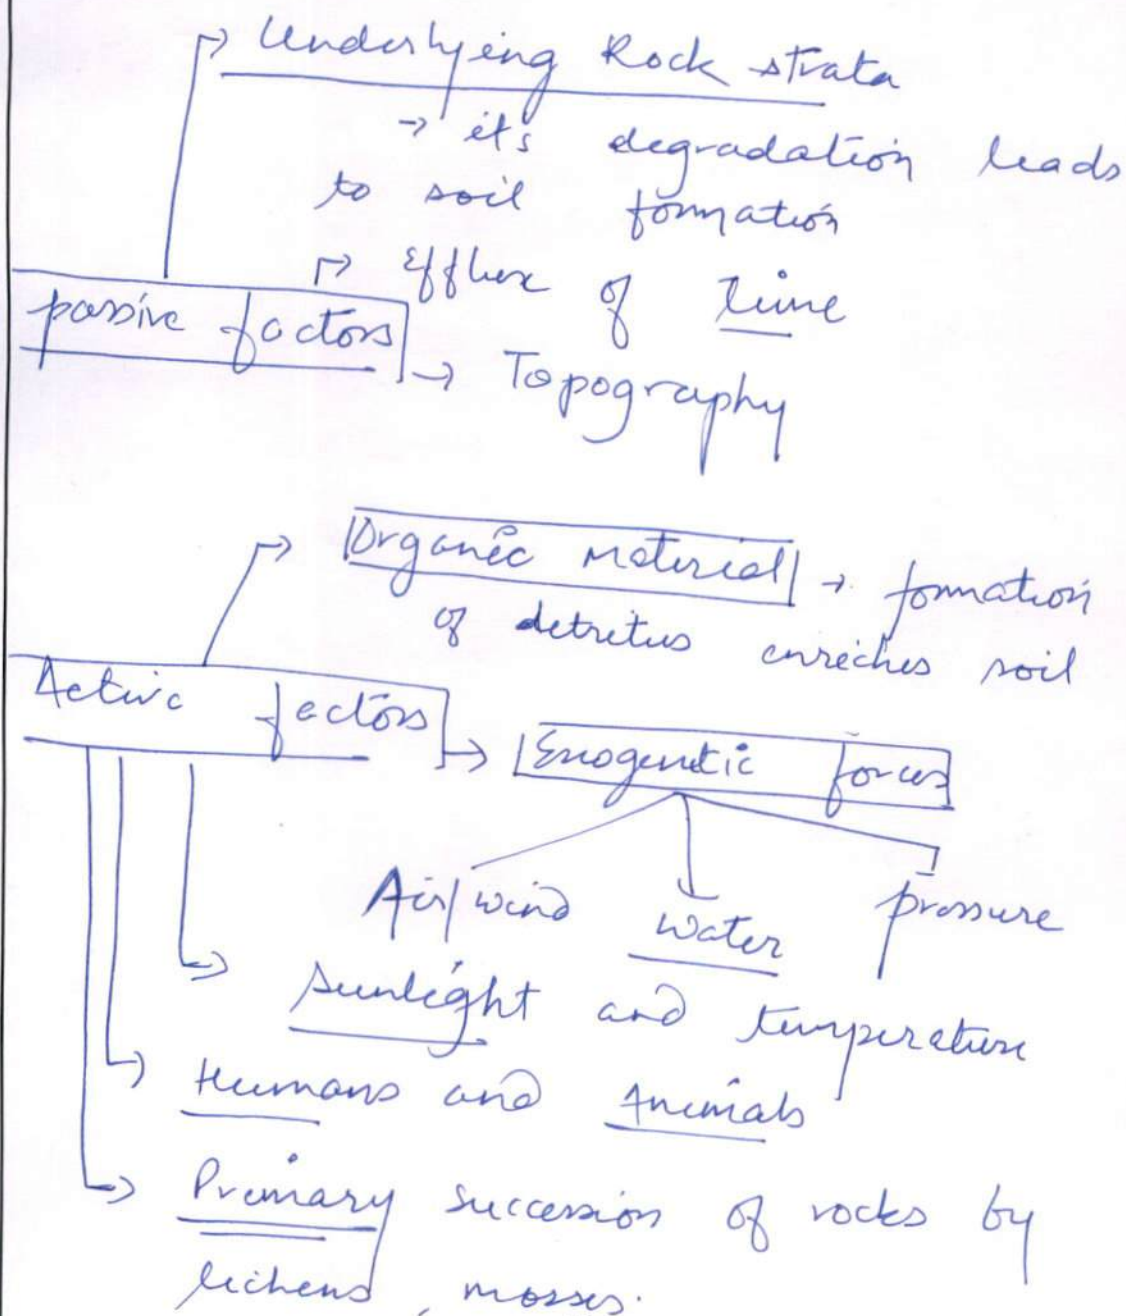 → Underlying Rock strata
→ it's degradation leads
to soil formation
→ Efflux of time
passive factors
→ Topography
→ Organic material → formation
of detritus enriches soil
Active factors
→ Exogenetic forces
Air/wind water pressure
→ sunlight and temperature
→ Humans and Animals
→ Primary succession of rocks by
lichens, mosses.